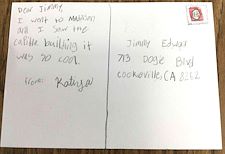 Dear Jimmy,
I went to Madison
and I saw the
capitle building it
was so cool.
from: Katiya
Jimmy Edwar
713 Doge Blvd
Cookeville, CA 8262